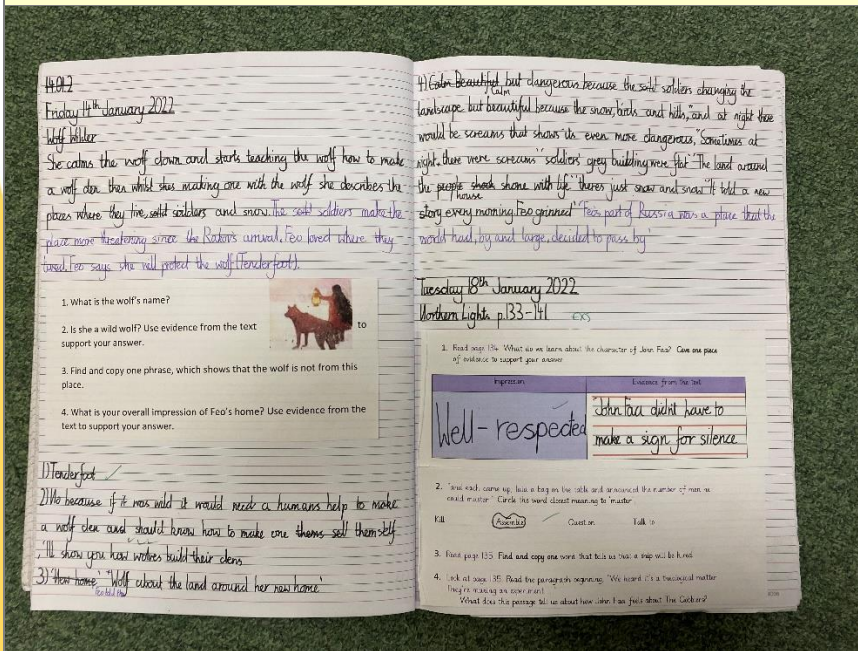 14.01.2
Friday 14th January 2022
Wolf Wilder
She calms the wolf down and starts teaching the wolf how to make
a wolf den. then whilst shes making one with the wolf she describes the
places where they live, soild soilders and snow. The soild soldiers make the
place more threatening since the Rakov's arrival. Feo loved where they
lived. Feo says she will protect the wolf (Tenderfoot).
1. What is the wolf's name?
2. Is she a wild wolf? Use evidence from the text to
support your answer.
3. Find and copy one phrase, which shows that the wolf is not from this
place.
4. What is your overall impression of Feo's home? Use evidence from the
text to support your answer.
1) Tenderfoot
2) No because if it was wild it would need a humans help to make
a wolf den and should know how to make one thems self themself
, 'I'll show you how wolves build their dens
3) 'New home' 'Wolf about the land around her new home'
Feo told the
4) Calm Beautiful but dangerous because the soild soldiers changing the
Calm
landscape but beautiful because the snow, birds and hills, and at night there
would be screams that shows its even more dangerous, "Sometimes at
night, there were screams" soldiers' grey building were flat "The land around
the people shook shone with life" theres just snow and snow "It told a new
house
story every morning Feo grinned" "Feos part of Russia was a place that the
world had, by and large, decided to pass by"
Tuesday 18th January 2022
Northern Lights p.133-141 EXS
1. Read page 134. What do we learn about the character of John Faa? Give one piece
of evidence to support your answer
Impression
Evidence from the text
Well-respected
"John Faa didn't have to
make a sign for silence
2. "and each came up, laid a bag on the table and announced the number of men he
could muster." Circle the word closest meaning to 'muster'
Kill Assemble Question Talk to
3. Read page 135. Find and copy one word that tells us that a ship will be hired
4. Look at page 135. Read the paragraph beginning, "We heard it's a theological matter
They're making an experiment
What does this passage tell us about how John Faa feels about The Gobblers?